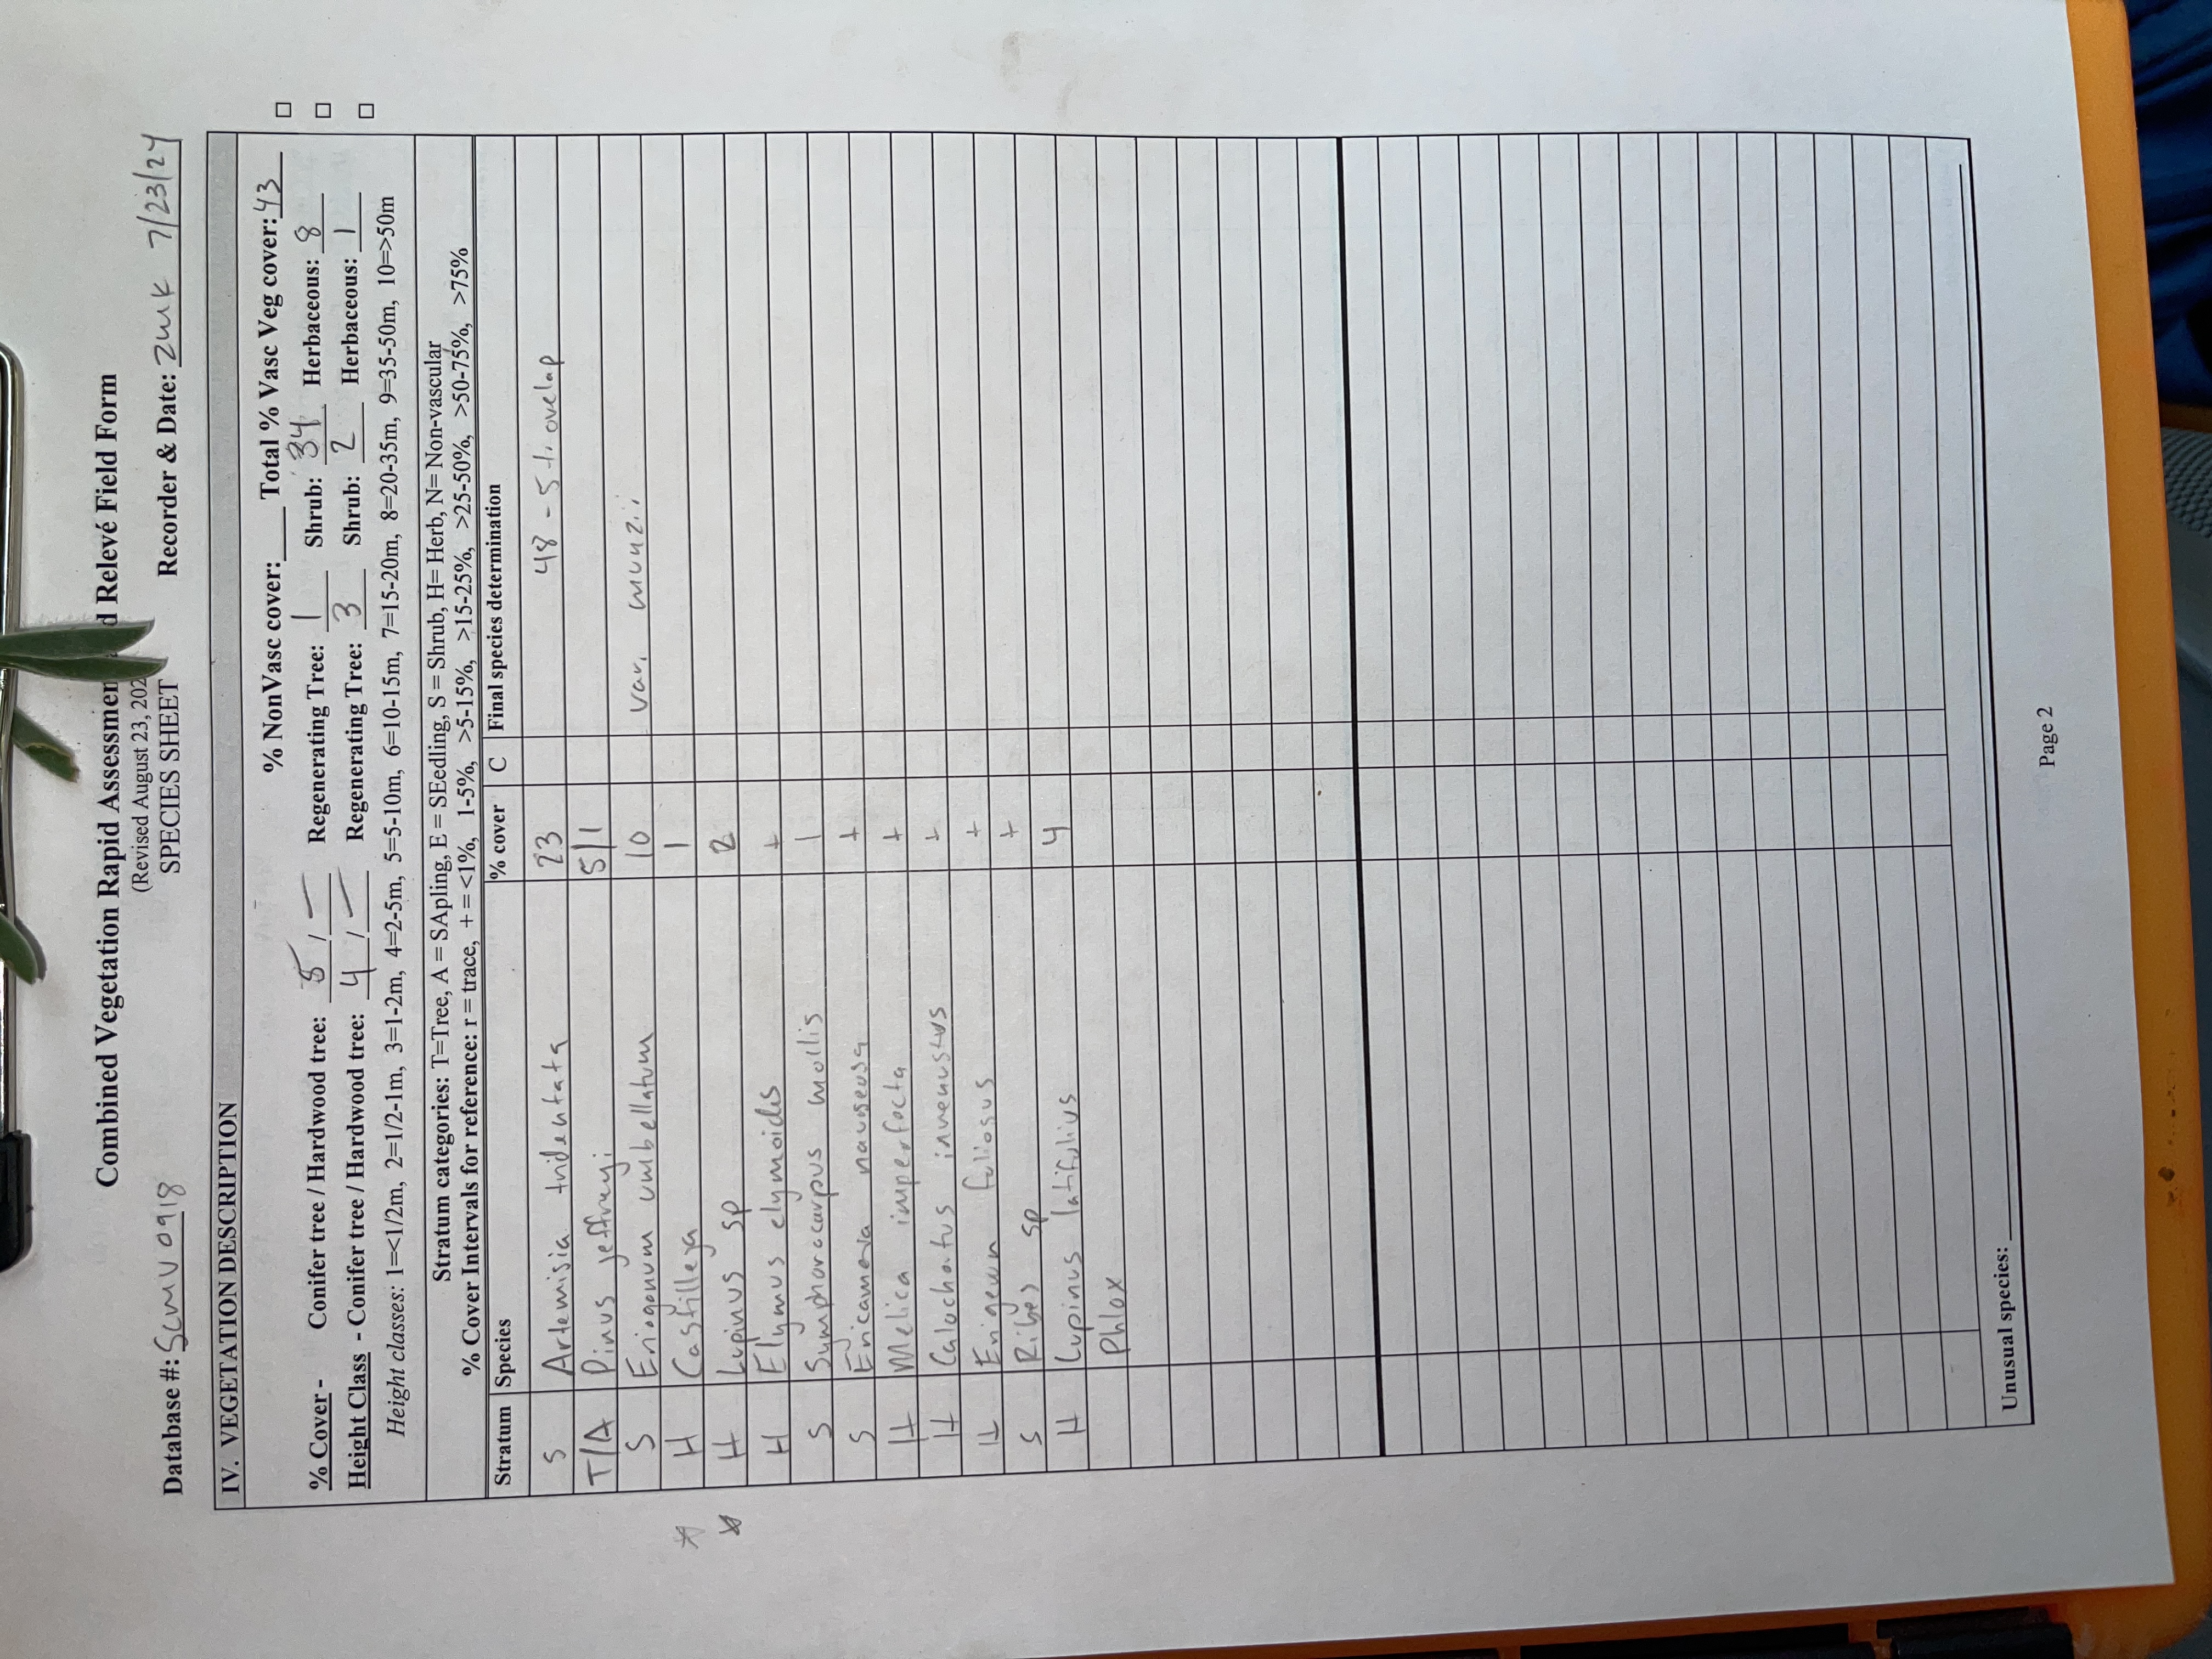 Combined Vegetation Rapid Assessmen d Relevé Field Form
(Revised August 23, 202
SPECIES SHEET
Database #: SCMU0918 Recorder & Date: ZMK 7/23/24
IV. VEGETATION DESCRIPTION
% NonVasc cover:___ Total % Vasc Veg cover: 43 □
% Cover - Conifer tree / Hardwood tree: 5 / — Regenerating Tree: 1 Shrub: 34 Herbaceous: 8 □
Height Class - Conifer tree / Hardwood tree: 4 / — Regenerating Tree: 3 Shrub: 2 Herbaceous: 1 □
Height classes: 1=<1/2m, 2=1/2-1m, 3=1-2m, 4=2-5m, 5=5-10m, 6=10-15m, 7=15-20m, 8=20-35m, 9=35-50m, 10=>50m
Stratum categories: T=Tree, A = SApling, E = SEedling, S = Shrub, H= Herb, N= Non-vascular
% Cover Intervals for reference: r = trace, + = <1%, 1-5%, >5-15%, >15-25%, >25-50%, >50-75%, >75%
Stratum Species % cover C Final species determination
S Artemisia tridentata 23 48 - 5 ovelap
T/A Pinus jeffreyi 5/1
S Eriogonum umbellatum 10 var. munzii
* H Castilleja 1
* H Lupinus sp 2
H Elymus elymoides +
S Symphoricarpus mollis 1
S Ericameria nauseosa +
H Melica imperfecta +
H Calochortus invenustus +
H Erigeron foliosus +
S Ribes sp +
H Lupinus latifolius 4
Phlox
Unusual species:
Page 2